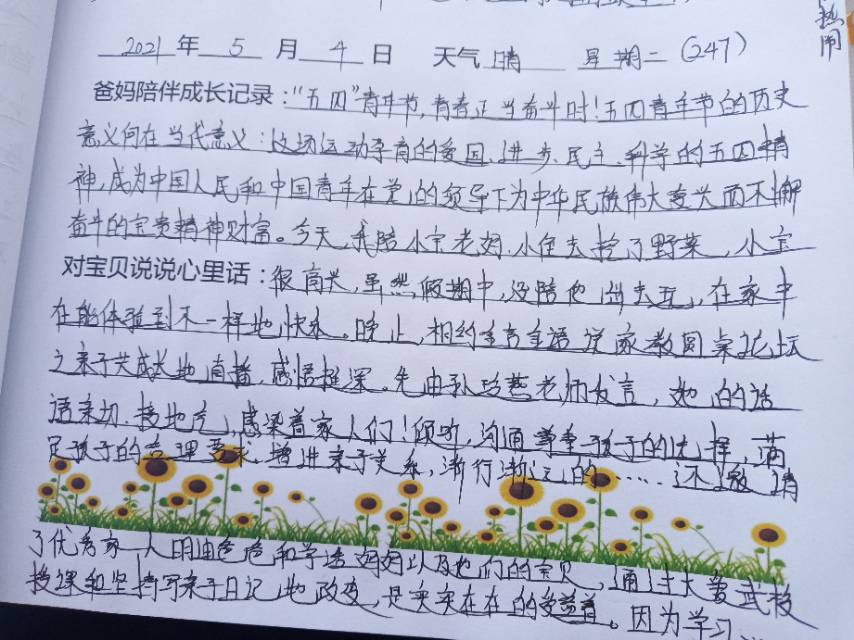 热闹
2021年5月4日 天气晴 星期二(247)
爸妈陪伴成长记录:"五四"青年节,青春正当奋斗时!五四青年节的历史
意义何在当代意义:这场运动孕育的爱国、进步、民主、科学的五四精
神,成为中国人民和中国青年在党的领导下为中华民族伟大复兴而不懈
奋斗的宝贵精神财富。今天,我陪小宝老妈、小侄去挖了野菜,小宝
对宝贝说说心里话:很高兴,虽然假期中,没陪他出去玩,在家中
在能体验到不一样地快乐。晚上,相约幸言幸语说家教圆桌论坛
之亲子共成长地直播,感悟挺深。先由孙玲燕老师发言,她的话
语亲切、接地气,感染着家人们!倾听,沟通尊重孩子的选择,满
足孩子的合理要求增进亲子关系,渐行渐远的……还邀请
了优秀家人明迪爸爸和学适妈妈以及他们的宝贝,通过大爱武校
授课和坚持写亲子日记地改变,是实实在在的受益着。因为学习